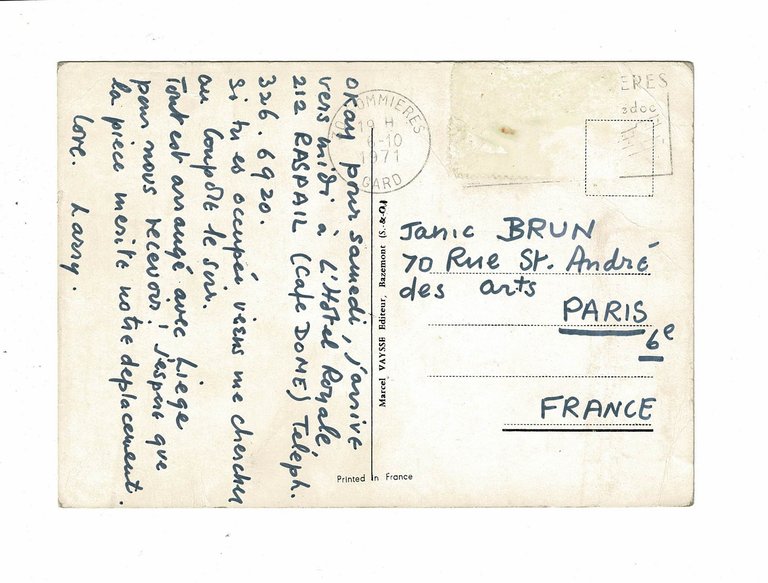 okay pour samedi, j'arrive
vers midi à L'Hôtel Royale
212 RASPAIL (Cafe DOME) Teléph.
326. 6920.
Si tu es occupée viens me chercher
au Coupôle le soir.
Tout est arrangé avec Liège
pour nous recevoir! J'espère que
la pièce merite notre deplacement.
Love. Larry.
OMMIERES
19 H
-10
1971
GARD
ERES
Marcel VAYSSE Editeur, Bazemont (S.-&-O.)
Janic BRUN
70 Rue St. André
des arts
PARIS
6e
FRANCE
Printed in France